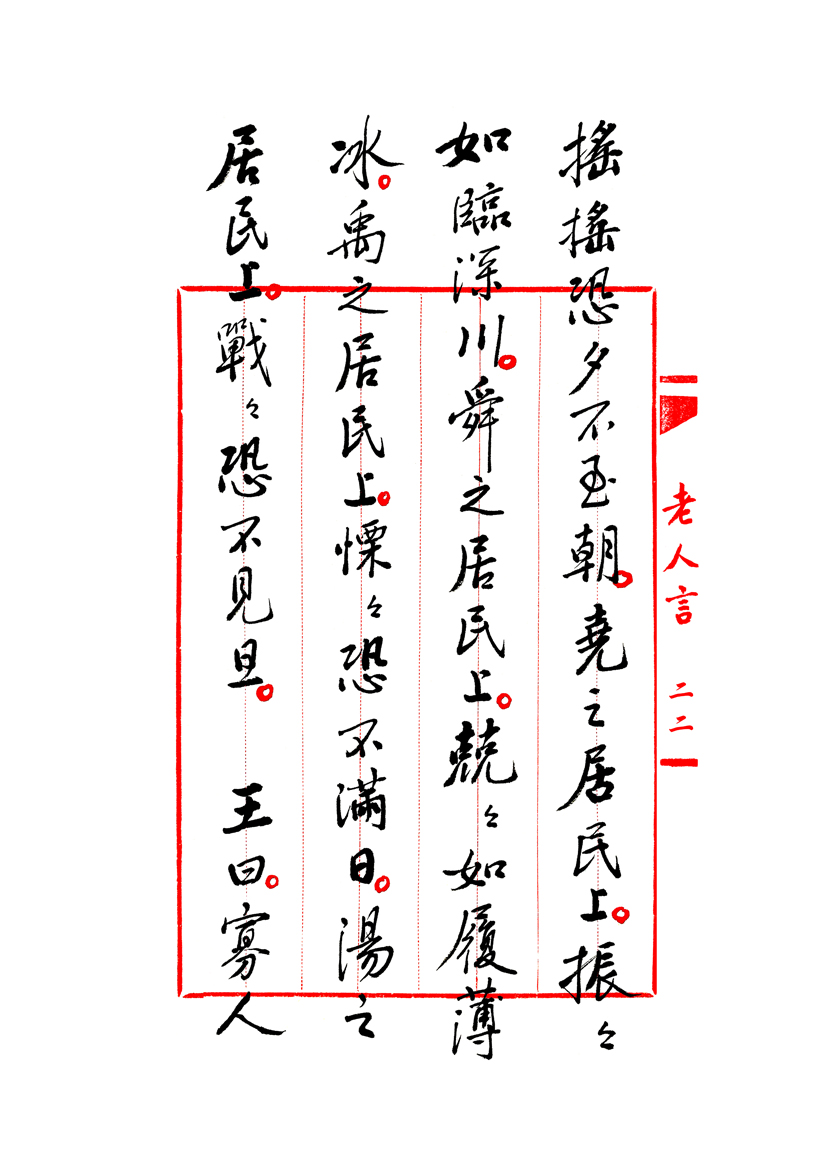 搖搖恐夕不至朝。堯之居民上。振々
如臨深川。舜之居民上。兢々如履薄
冰。禹之居民上。慄々恐不滿日。湯之
居民上。戰々恐不見旦。 王曰。寡人
老人言 二二